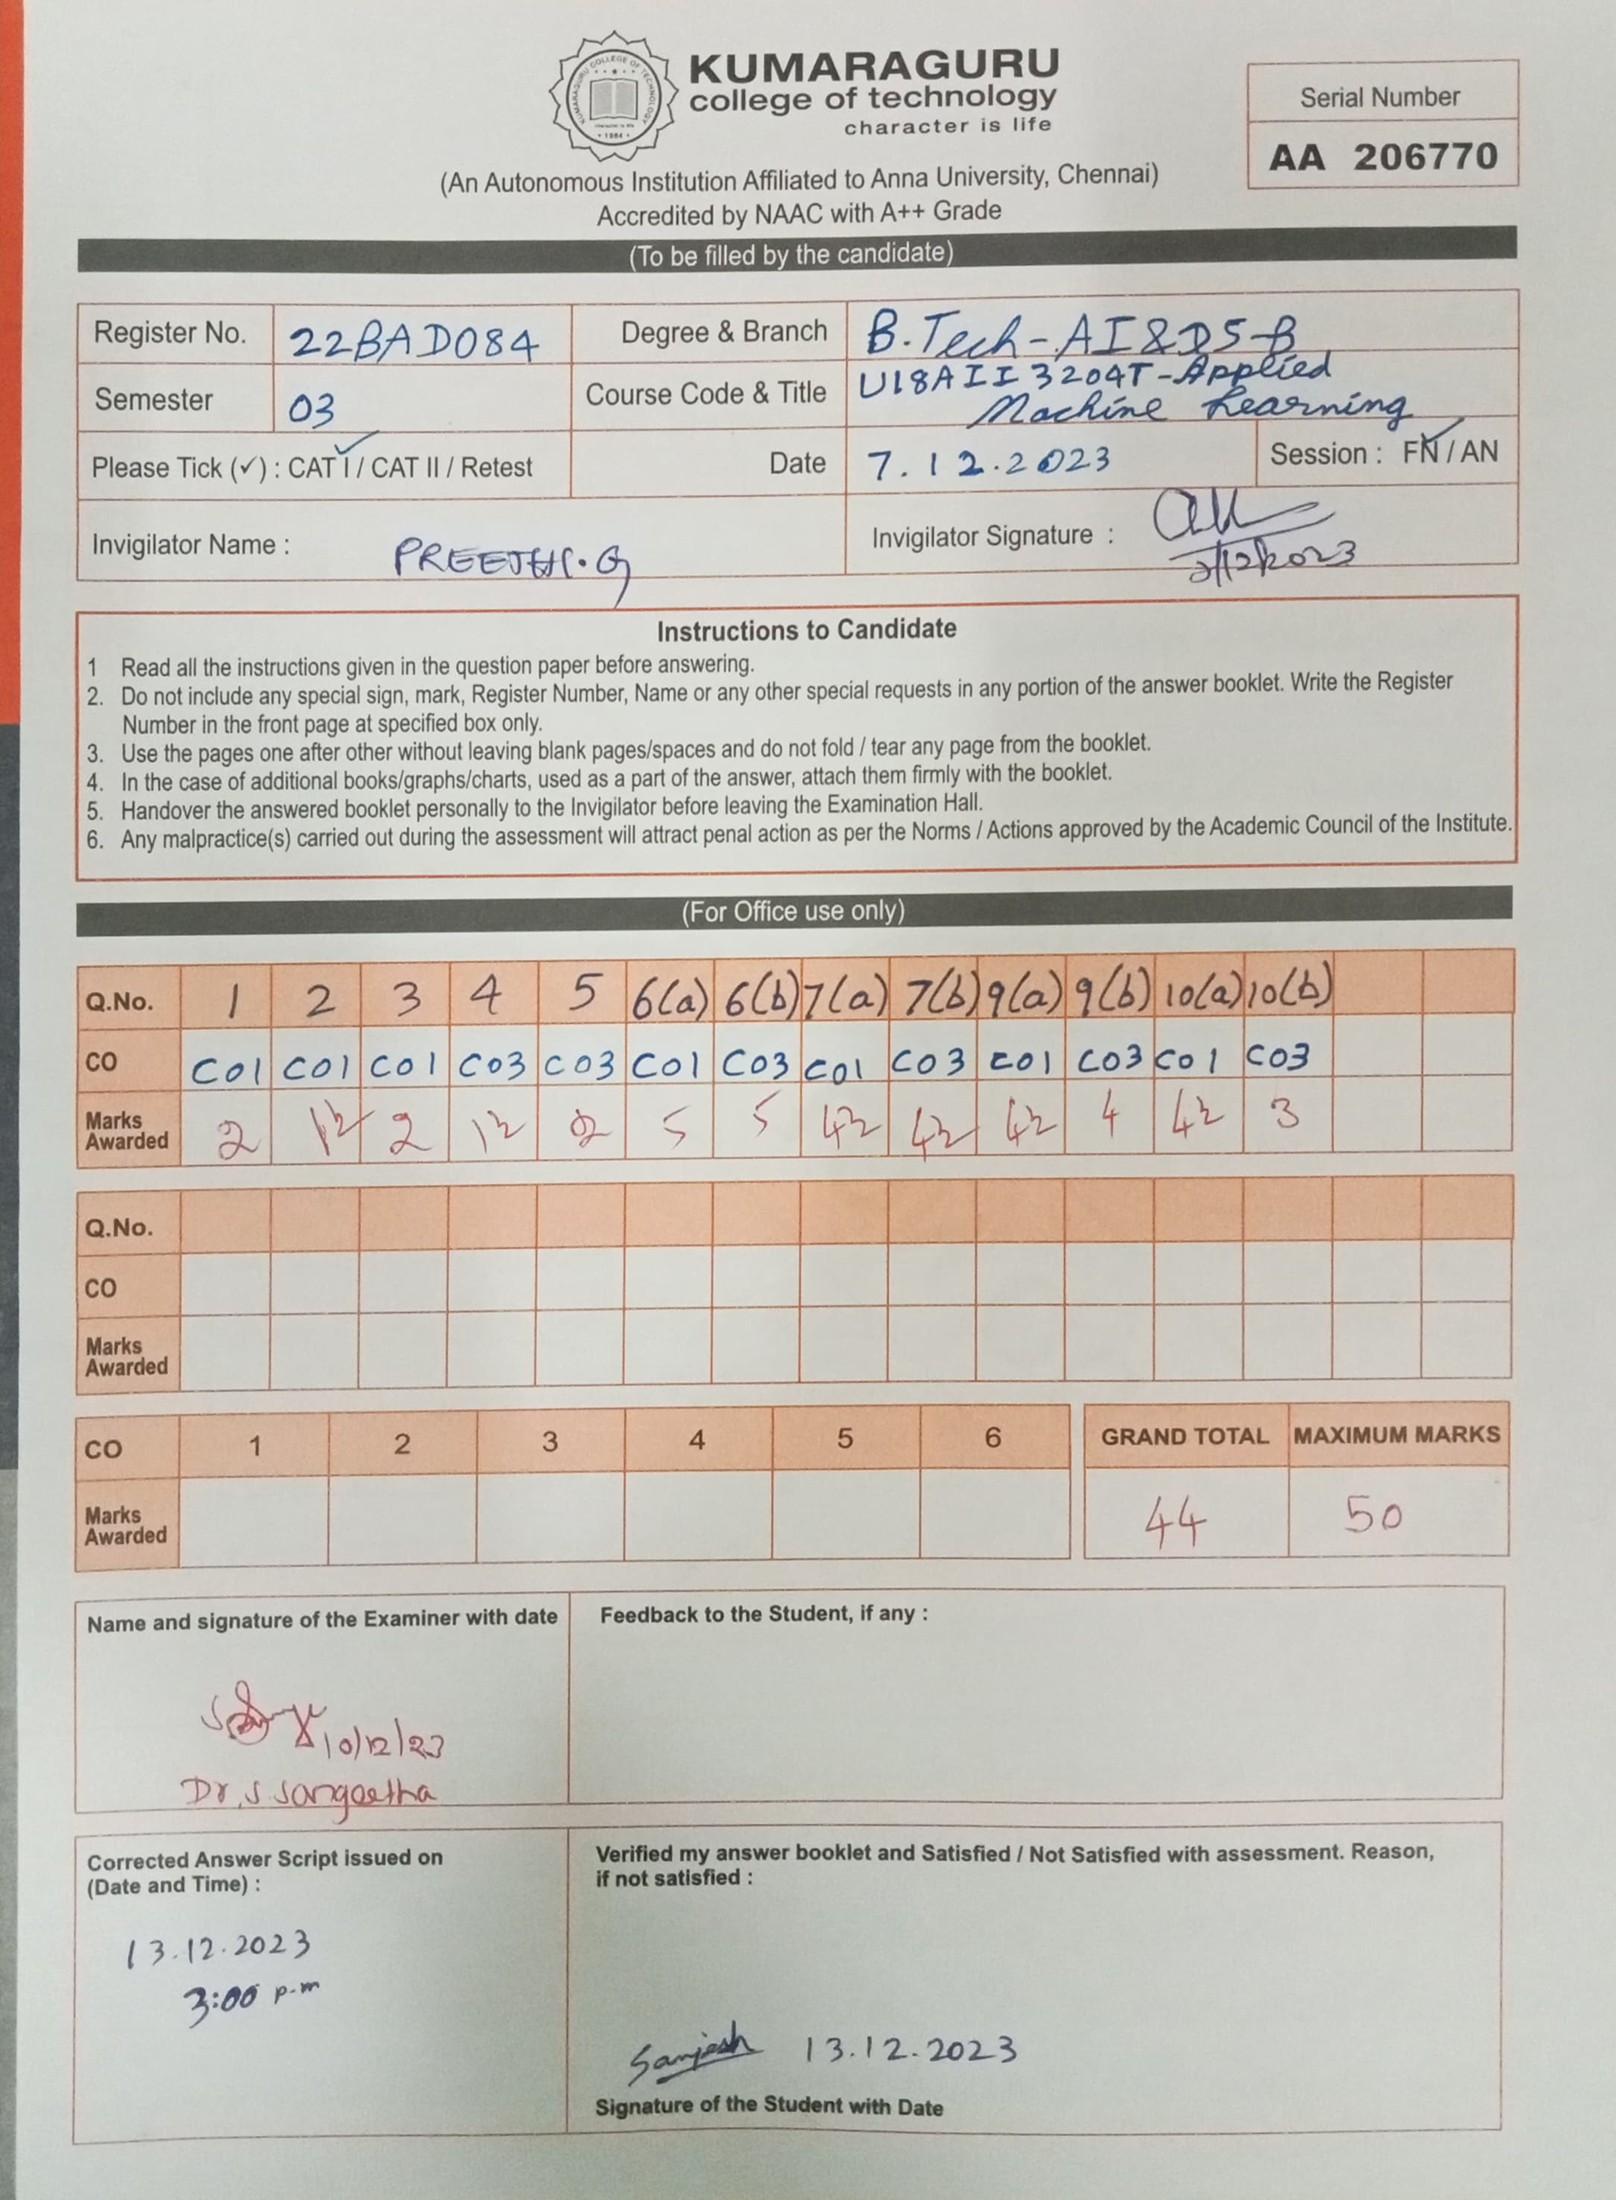 KUMARAGURU
college of technology
character is life
KUMARAGURU COLLEGE OF TECHNOLOGY
character is life
• 1984 •
Serial Number
AA 206770
(An Autonomous Institution Affiliated to Anna University, Chennai)
Accredited by NAAC with A++ Grade
(To be filled by the candidate)
Register No. 22BAD084 Degree & Branch B.Tech-AI&DS-B
Semester 03 Course Code & Title U18AII3204T-Applied
Machine Learning
Please Tick (✓) : CAT I / CAT II / Retest Date 7.12.2023 Session : FN / AN
Invigilator Name : PREETHI.G Invigilator Signature :
7/12/2023
Instructions to Candidate
1 Read all the instructions given in the question paper before answering.
2. Do not include any special sign, mark, Register Number, Name or any other special requests in any portion of the answer booklet. Write the Register
Number in the front page at specified box only.
3. Use the pages one after other without leaving blank pages/spaces and do not fold / tear any page from the booklet.
4. In the case of additional books/graphs/charts, used as a part of the answer, attach them firmly with the booklet.
5. Handover the answered booklet personally to the Invigilator before leaving the Examination Hall.
6. Any malpractice(s) carried out during the assessment will attract penal action as per the Norms / Actions approved by the Academic Council of the Institute.
(For Office use only)
Q.No. 1 2 3 4 5 6(a) 6(b) 7(a) 7(b) 9(a) 9(b) 10(a) 10(b)
CO CO1 CO1 CO1 CO3 CO3 CO1 CO3 CO1 CO3 CO1 CO3 CO1 CO3
Marks
Awarded 2 1½ 2 1½ 2 5 5 4½ 4½ 4½ 4 4½ 3
Q.No.
CO
Marks
Awarded
CO 1 2 3 4 5 6 GRAND TOTAL MAXIMUM MARKS
Marks
Awarded 44 50
Name and signature of the Examiner with date
10/12/23
Dr. S. Sangeetha
Feedback to the Student, if any :
Corrected Answer Script issued on
(Date and Time) :
13.12.2023
3:00 p.m
Verified my answer booklet and Satisfied / Not Satisfied with assessment. Reason,
if not satisfied :
Sanjesh 13.12.2023
Signature of the Student with Date